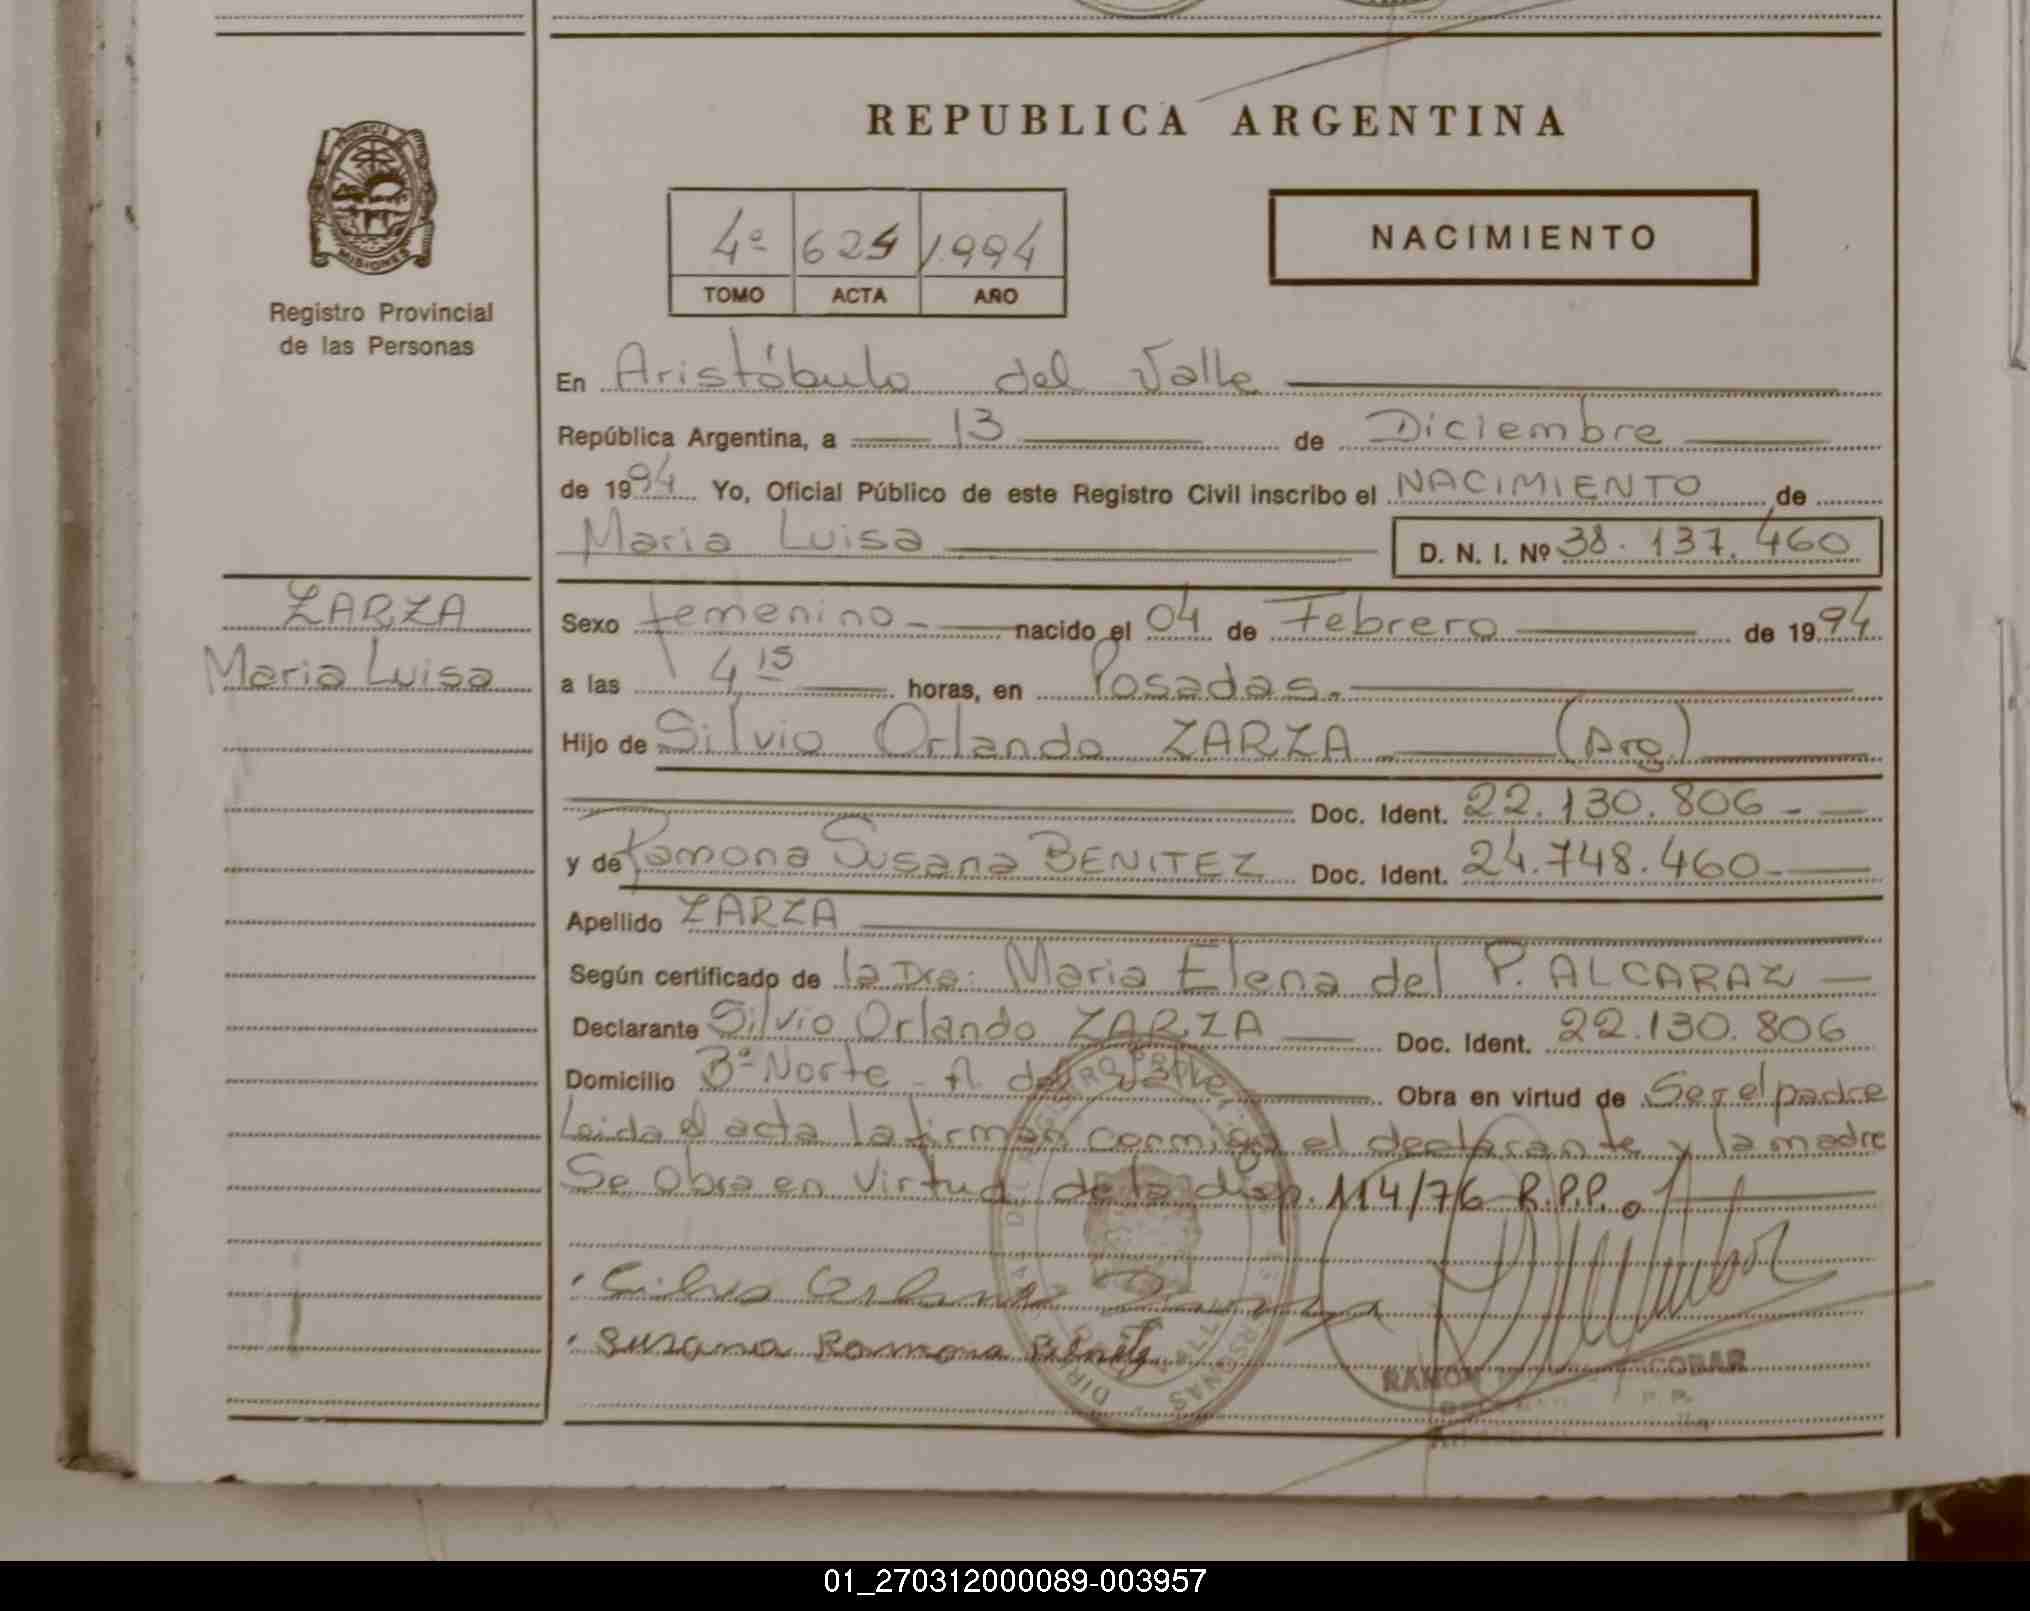 REPUBLICA ARGENTINA
PROVINCIA DE
MISIONES
Registro Provincial
de las Personas
4º 624 1994
TOMO ACTA AÑO
NACIMIENTO
En Aristóbulo del Valle
República Argentina, a 13 de Diciembre
de 1994 Yo, Oficial Público de este Registro Civil inscribo el NACIMIENTO de
Maria Luisa D. N. I. Nº 38.137.460
ZARZA
Maria Luisa
Sexo femenino nacido el 04 de Febrero de 1994
a las 4 15 horas, en Posadas.
Hijo de Silvio Orlando ZARZA (Arg.)
Doc. Ident. 22.130.806
y de Ramona Susana BENITEZ Doc. Ident. 24.748.460
Apellido ZARZA
Según certificado de la Dra: Maria Elena del P. ALCARAZ
Declarante Silvio Orlando ZARZA Doc. Ident. 22.130.806
Domicilio Bº Norte - A. del Valle Obra en virtud de Ser el padre
Leida el acta la firman conmigo el declarante y la madre
Se obra en virtud de la disp. 114/76 R.P.P.
Silvio Orlando Zarza
Susana Ramona Benitez
RAMON ESCOBAR
01_270312000089-003957